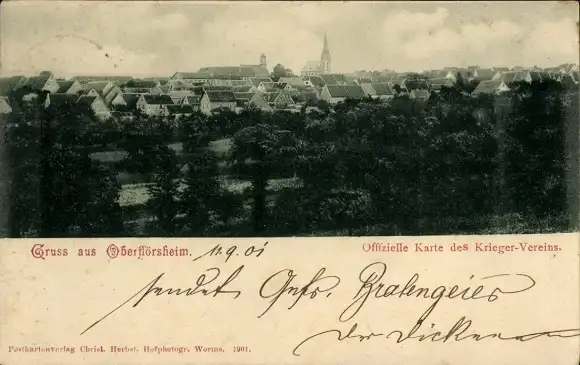 Gruss aus Oberflörsheim. 11.9.01
Offizielle Karte des Krieger-Vereins.
sendet
der
Postkartenverlag Christ. Herbst, Hofphotogr. Worms. 1901.